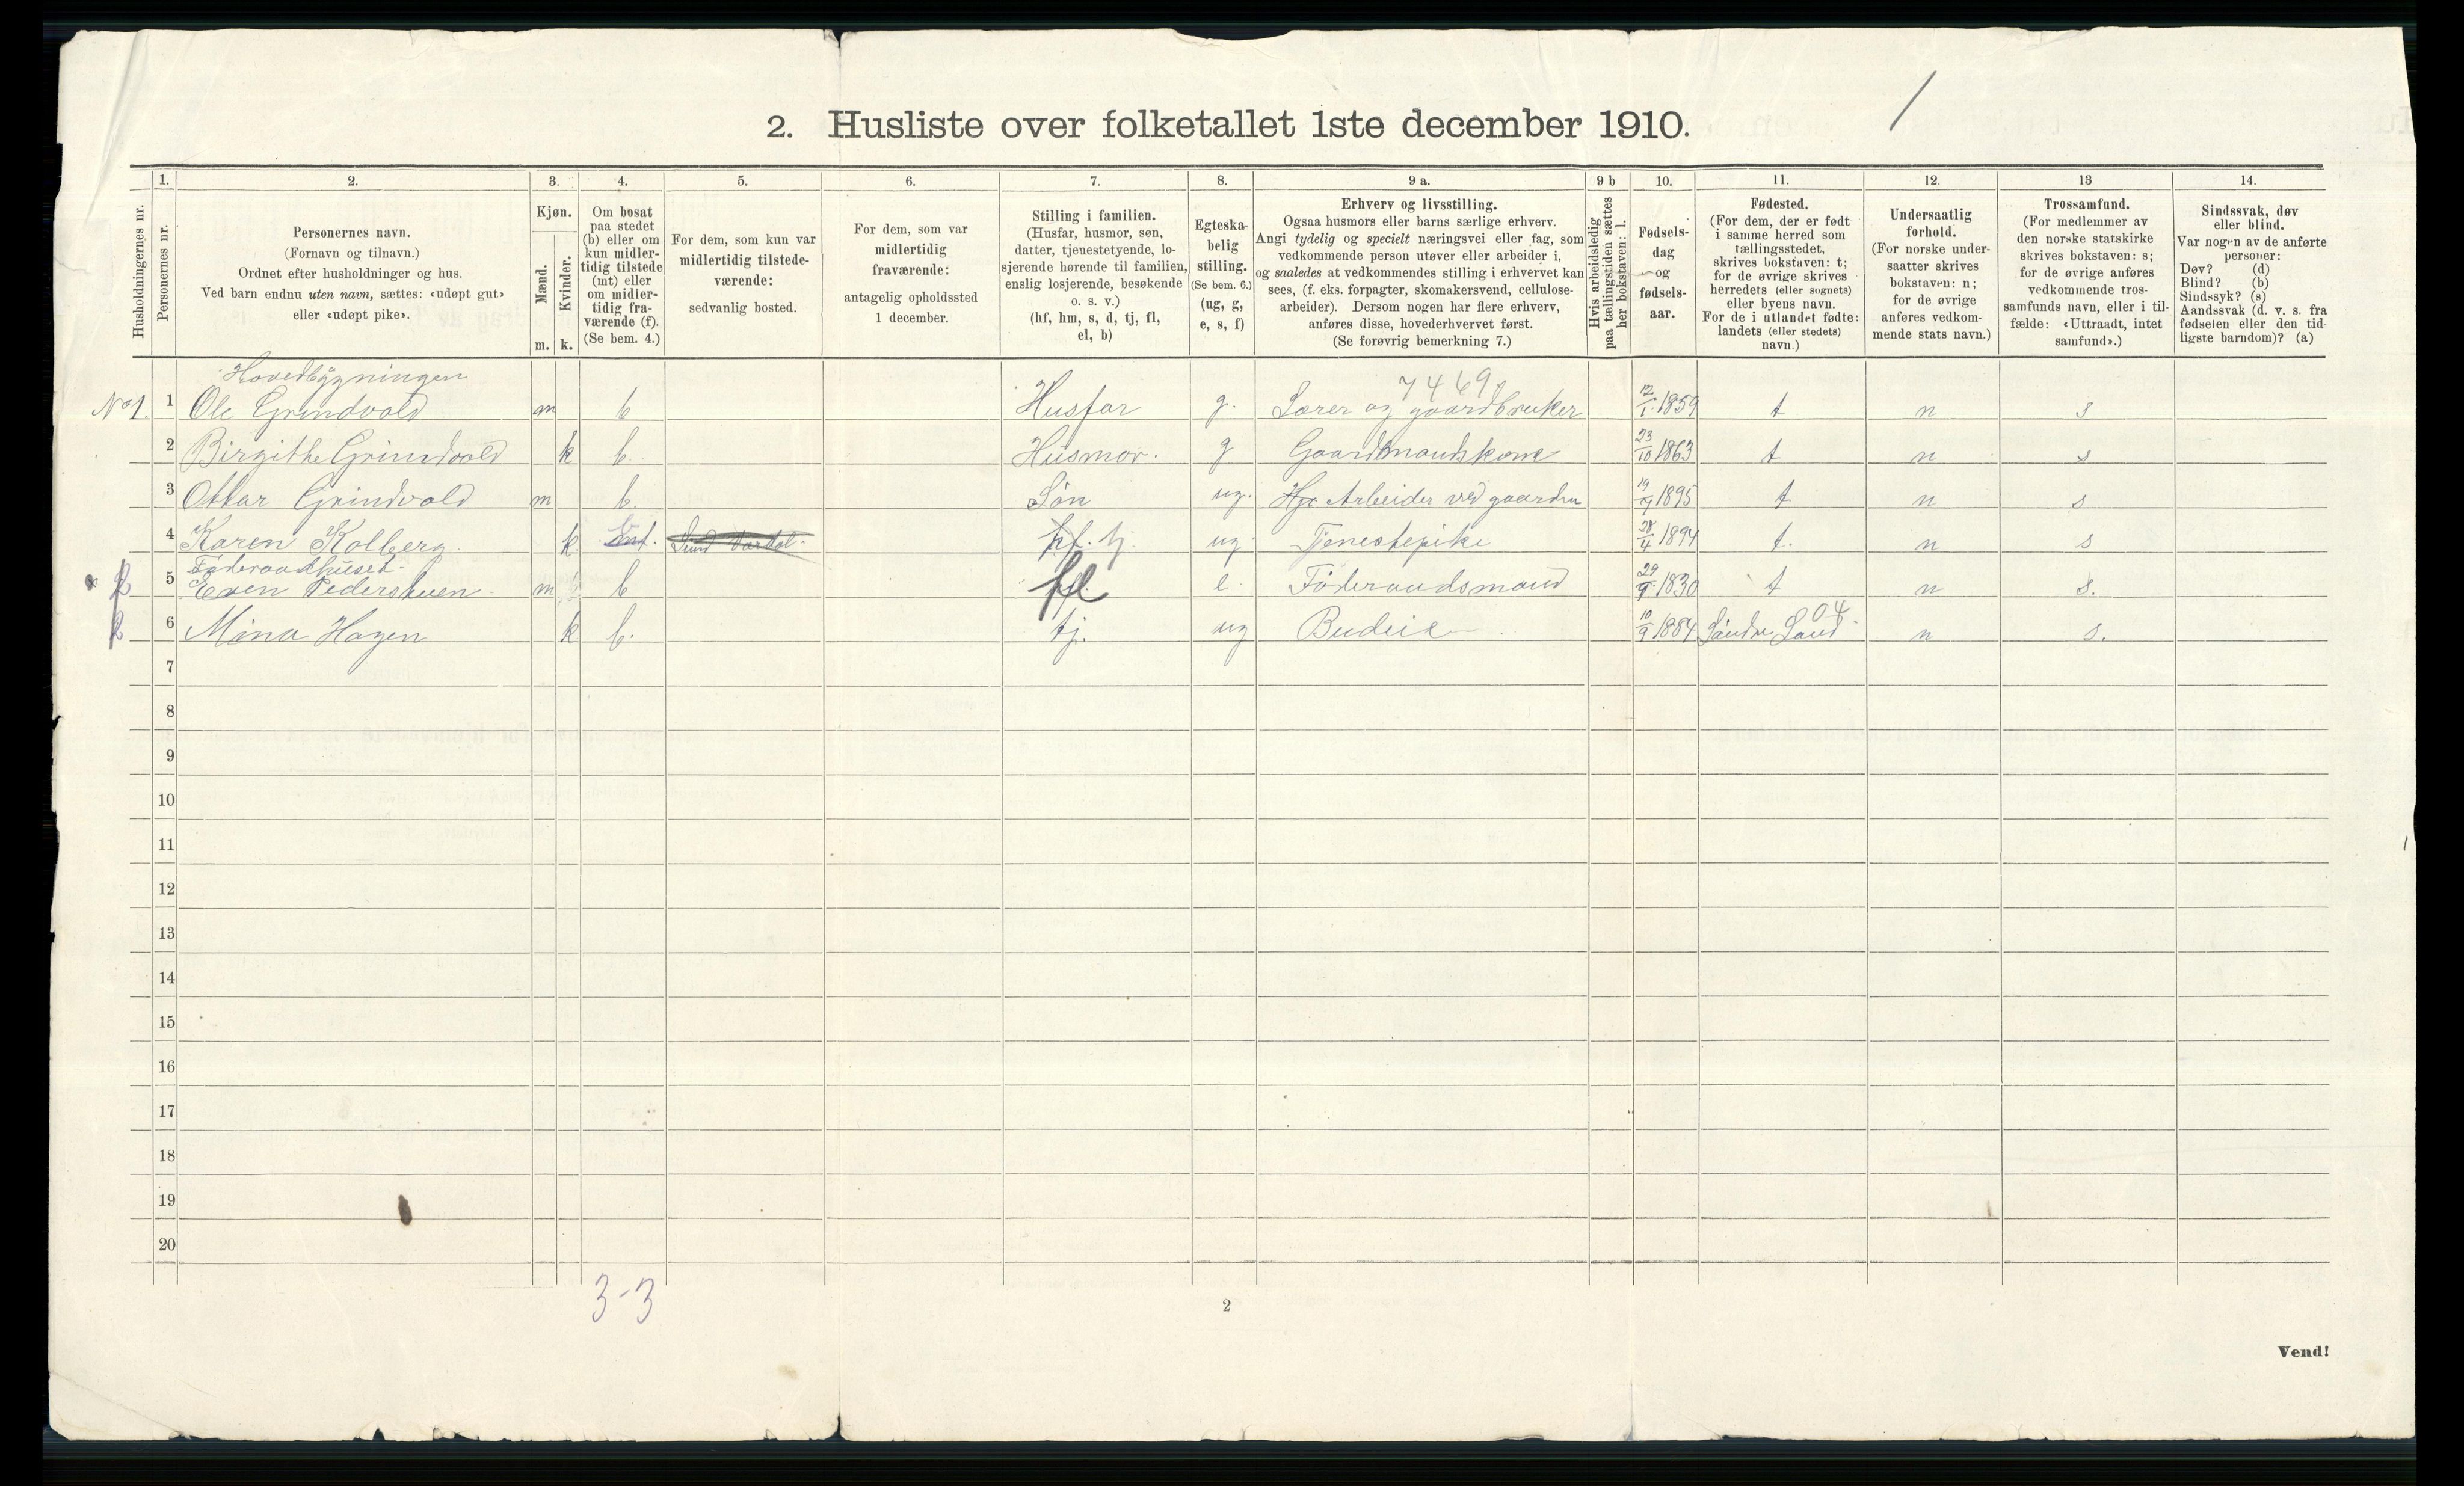 2. Husliste over folketallet 1ste december 1910.
/
1. 2. 3. 4. 5. 6. 7. 8. 9 a. 9 b 10. 11. 12. 13 14.
Husholdningernes nr.
Personernes nr.
Personernes navn.
(Fornavn og tilnavn.)
Ordnet efter husholdninger og hus.
Ved barn endnu uten navn, sættes: «udøpt gut»
eller «udøpt pike».
Kjøn.
Mænd.
Kvinder.
m. k.
Om bosat
paa stedet
(b) eller om
kun midler-
tidig tilstede
(mt) eller
om midler-
tidig fra-
værende (f).
(Se bem. 4.)
For dem, som kun var
midlertidig tilstede-
værende:
sedvanlig bosted.
For dem, som var
midlertidig
fraværende:
antagelig opholdssted
1 december.
Stilling i familien.
(Husfar, husmor, søn,
datter, tjenestetyende, lo-
sjerende hørende til familien,
enslig losjerende, besøkende
o. s. v.)
(hf, hm, s, d, tj, fl,
el, b)
Egteska-
belig
stilling.
(Se bem. 6.)
(ug, g,
e, s, f)
Erhverv og livsstilling.
Ogsaa husmors eller barns særlige erhverv.
Angi tydelig og specielt næringsvei eller fag, som
vedkommende person utøver eller arbeider i,
og saaledes at vedkommendes stilling i erhvervet kan
sees, (f. eks. forpagter, skomakersvend, cellulose-
arbeider). Dersom nogen har flere erhverv,
anføres disse, hovederhvervet først.
(Se forøvrig bemerkning 7.)
Hvis arbeidsledig
paa tællingstiden sættes
her bokstaven: l.
Fødsels-
dag
og
fødsels-
aar.
Fødested.
(For dem, der er født
i samme herred som
tællingsstedet,
skrives bokstaven: t;
for de øvrige skrives
herredets (eller sognets)
eller byens navn.
For de i utlandet fødte:
landets (eller stedets)
navn.)
Undersaatlig
forhold.
(For norske under-
saatter skrives
bokstaven: n;
for de øvrige
anføres vedkom-
mende stats navn.)
Trossamfund.
(For medlemmer av
den norske statskirke
skrives bokstaven: s;
for de øvrige anføres
vedkommende tros-
samfunds navn, eller i til-
fælde: «Uttraadt, intet
samfund».)
Sindssvak, døv
eller blind.
Var nogen av de anførte
personer:
Døv? (d)
Blind? (b)
Sindssyk? (s)
Aandssvak (d. v. s. fra
fødselen eller den tid-
ligste barndom)? (a)
Hovedbygningen 7469
No 1. 1 Ole Grindvold m b Husfar g. Lærer og gaardbruker 12/1 1859 t n s
2 Birgithe Grindvold k b. Husmor. g Gaardmandskone 23/10 1863 t n s
3 Ottar Grindvold m b. Søn ug. Arbeider ved gaarden 1895 t n s
4 Karen Kolberg k tj. ug Tjenestepike 1894 t. n s
Føderaadhuset.
5 Even Pedershuen m b fl e Føderaadsmand 1830 t n s.
04
6 Mina Hagen k b. tj. ug Budeie 10/9 1884 Søndre Land n s.
7
8
9
10
11
12
13
14
15
16
17
18
19
20
3-3
2
Vend!